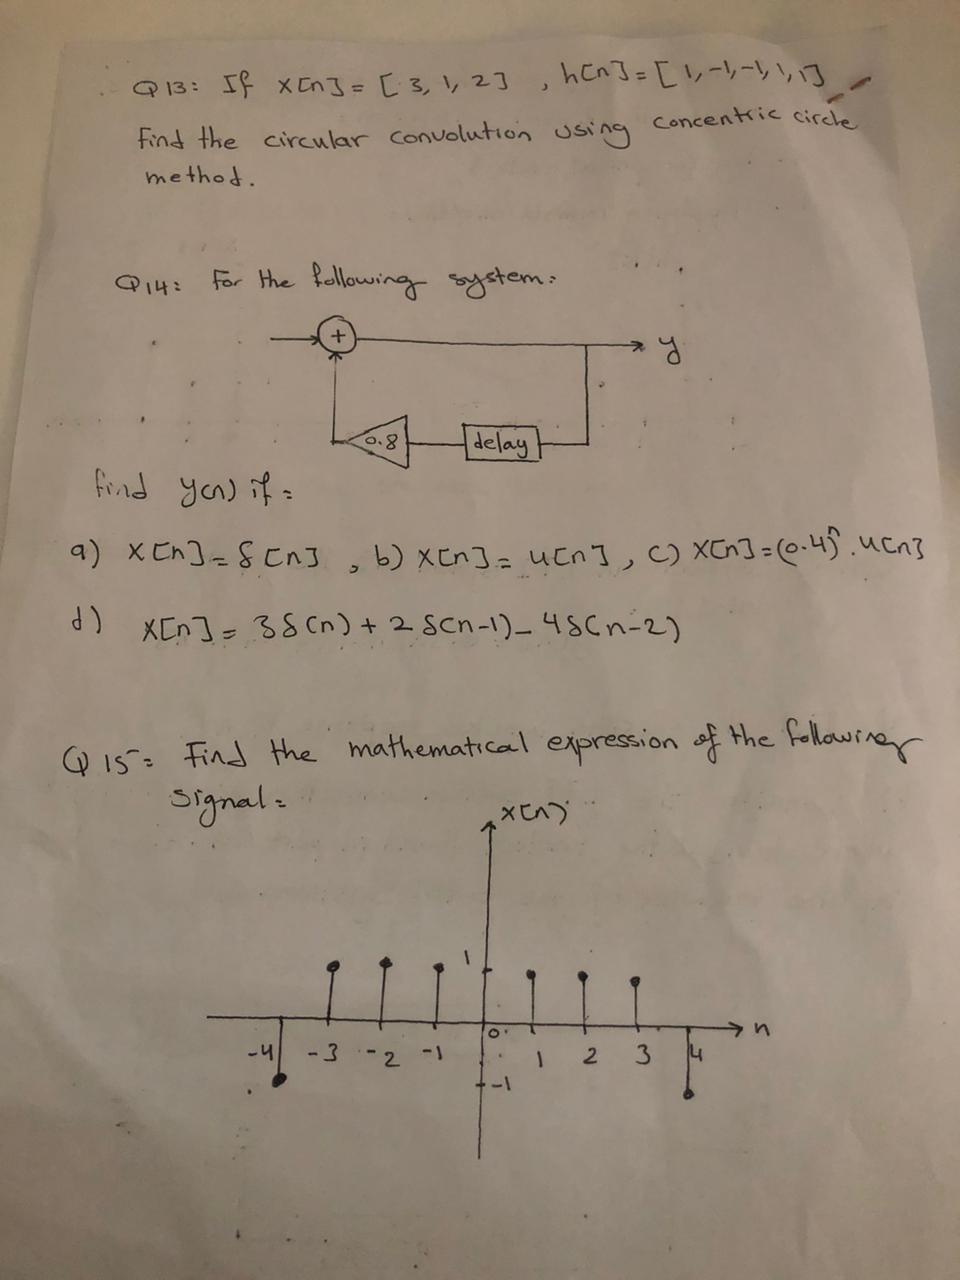 Q13: If x[n] = [3, 1, 2] , h[n] = [1, -1, -1, 1, 1]
Find the circular convolution using concentric circle
method.
Q14: For the following system:
+
y
0.8
delay
find y(n) if:
a) x[n] = δ[n] , b) x[n] = u[n] , c) x[n] = (0.4)ⁿ . u[n]
d) x[n] = 3δ(n) + 2δ(n-1) - 4δ(n-2)
Q15: Find the mathematical expression of the following
signal:
x[n]
1
n
0
-4 -3 -2 -1 1 2 3 4
-1